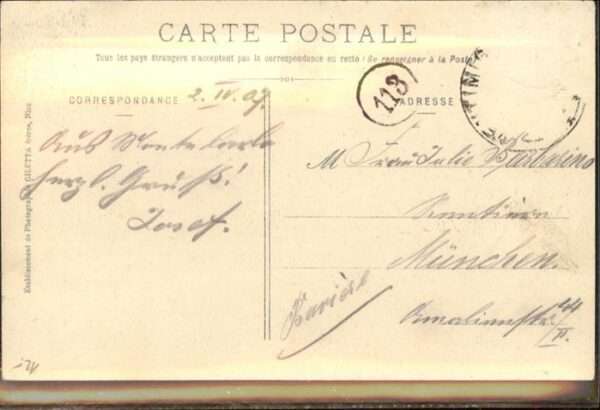 CARTE POSTALE
Tous les pays étrangers n'acceptent pas la correspondance au recto (Se renseigner à la Poste)
CORRESPONDANCE 2. IV. 07.
ADRESSE
113
TIMB
Aus Monte Carlo
herzl. Gruß!
Josef.
M Frau Julie Barbarino
München.
Bavière
Amalienstr. 24
Etablissement de Photographie, GILETTA frères, Nice